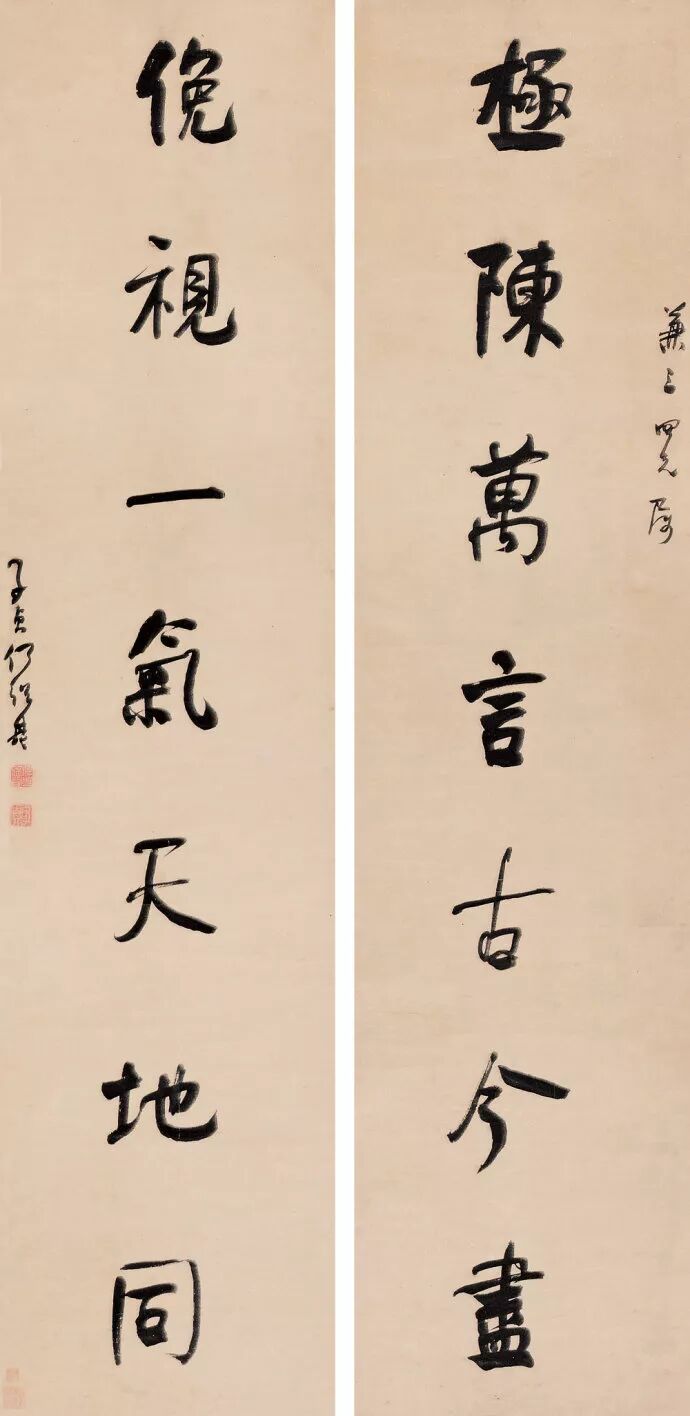 兼三四兄屬
極陳萬言古今盡
俛視一氣天地同
子貞何紹基